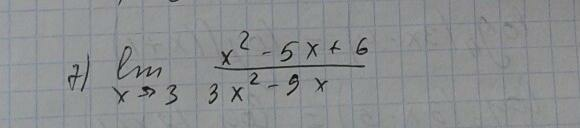 7) lim x→3 (x² - 5x + 6) / (3x² - 9x)